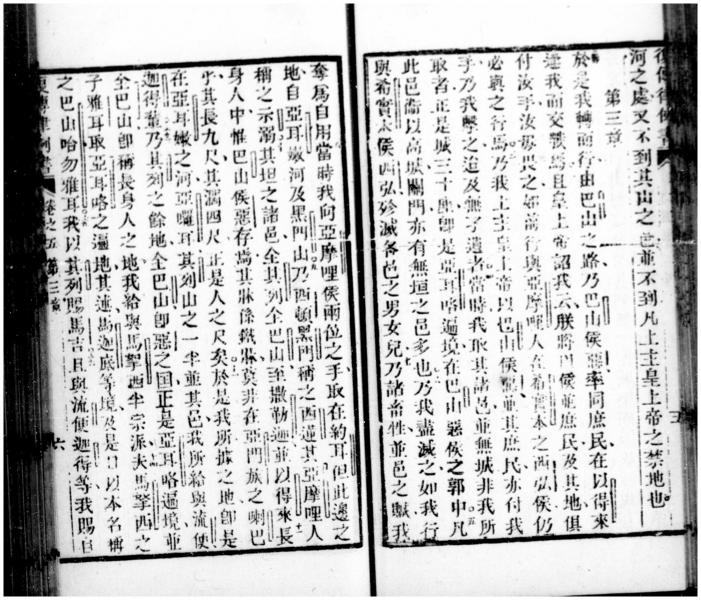 河之處又不到其山之邑並不到凡上主皇上帝之禁地也
第三章
於是我轉而行由巴山之路乃巴山侯惡率同庶民在以得來
逢我而交戰焉且皇上帝詔我云朕將此侯並庶民及其地俱
付汝手汝毋畏之如前行與亞摩哩人在希實本之西弘侯仍
必與之行焉乃我上主皇上帝以巴山侯惡並其庶民亦付我
手乃我擊之迨及無孑遺者當時我取其諸邑並無城非我所
取者正是城三十座卽是亞耳略遍境在巴山惡侯之郭中凡
此邑備以高城關門亦有無垣之邑多也乃我盡滅之如我行
與希實本侯西弘殄滅各邑之男女兒乃諸畜牲並邑之贓我
奪爲自用當時我向亞摩哩侯兩位之手取在約耳但此邊之
地自亞耳嫩河及黑門山乃西頓黑門稱之西連其亞摩哩人
稱之示溺其坦之諸邑全其列全巴山至撒勒迦並以得來長
身人中惟巴山侯惡存焉其牀係鐵牀莫非在亞門族之喇巴
乎其長九尺其濶四尺正是人之尺矣於是我所據之地卽是
在亞耳嫩之河亞囉耳其列山之一半並其邑我所給與流便
迦得輩乃其列之餘地全巴山卽惡之国正是亞耳略遍境並
全巴山卽稱長身人之地我給與馬拏西半宗派夫馬拏西之
子雅耳取亞耳略之遍地其連馬迦底等境及是 以本名稱
之巴山哈勿雅耳我以其列賜馬吉且與流便迦得等我賜自
卷之五 第三章
五
六